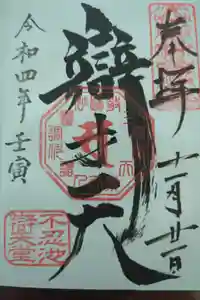 奉拝
十一月
辯才天
令和四年 壬寅
不忍池
辯天堂